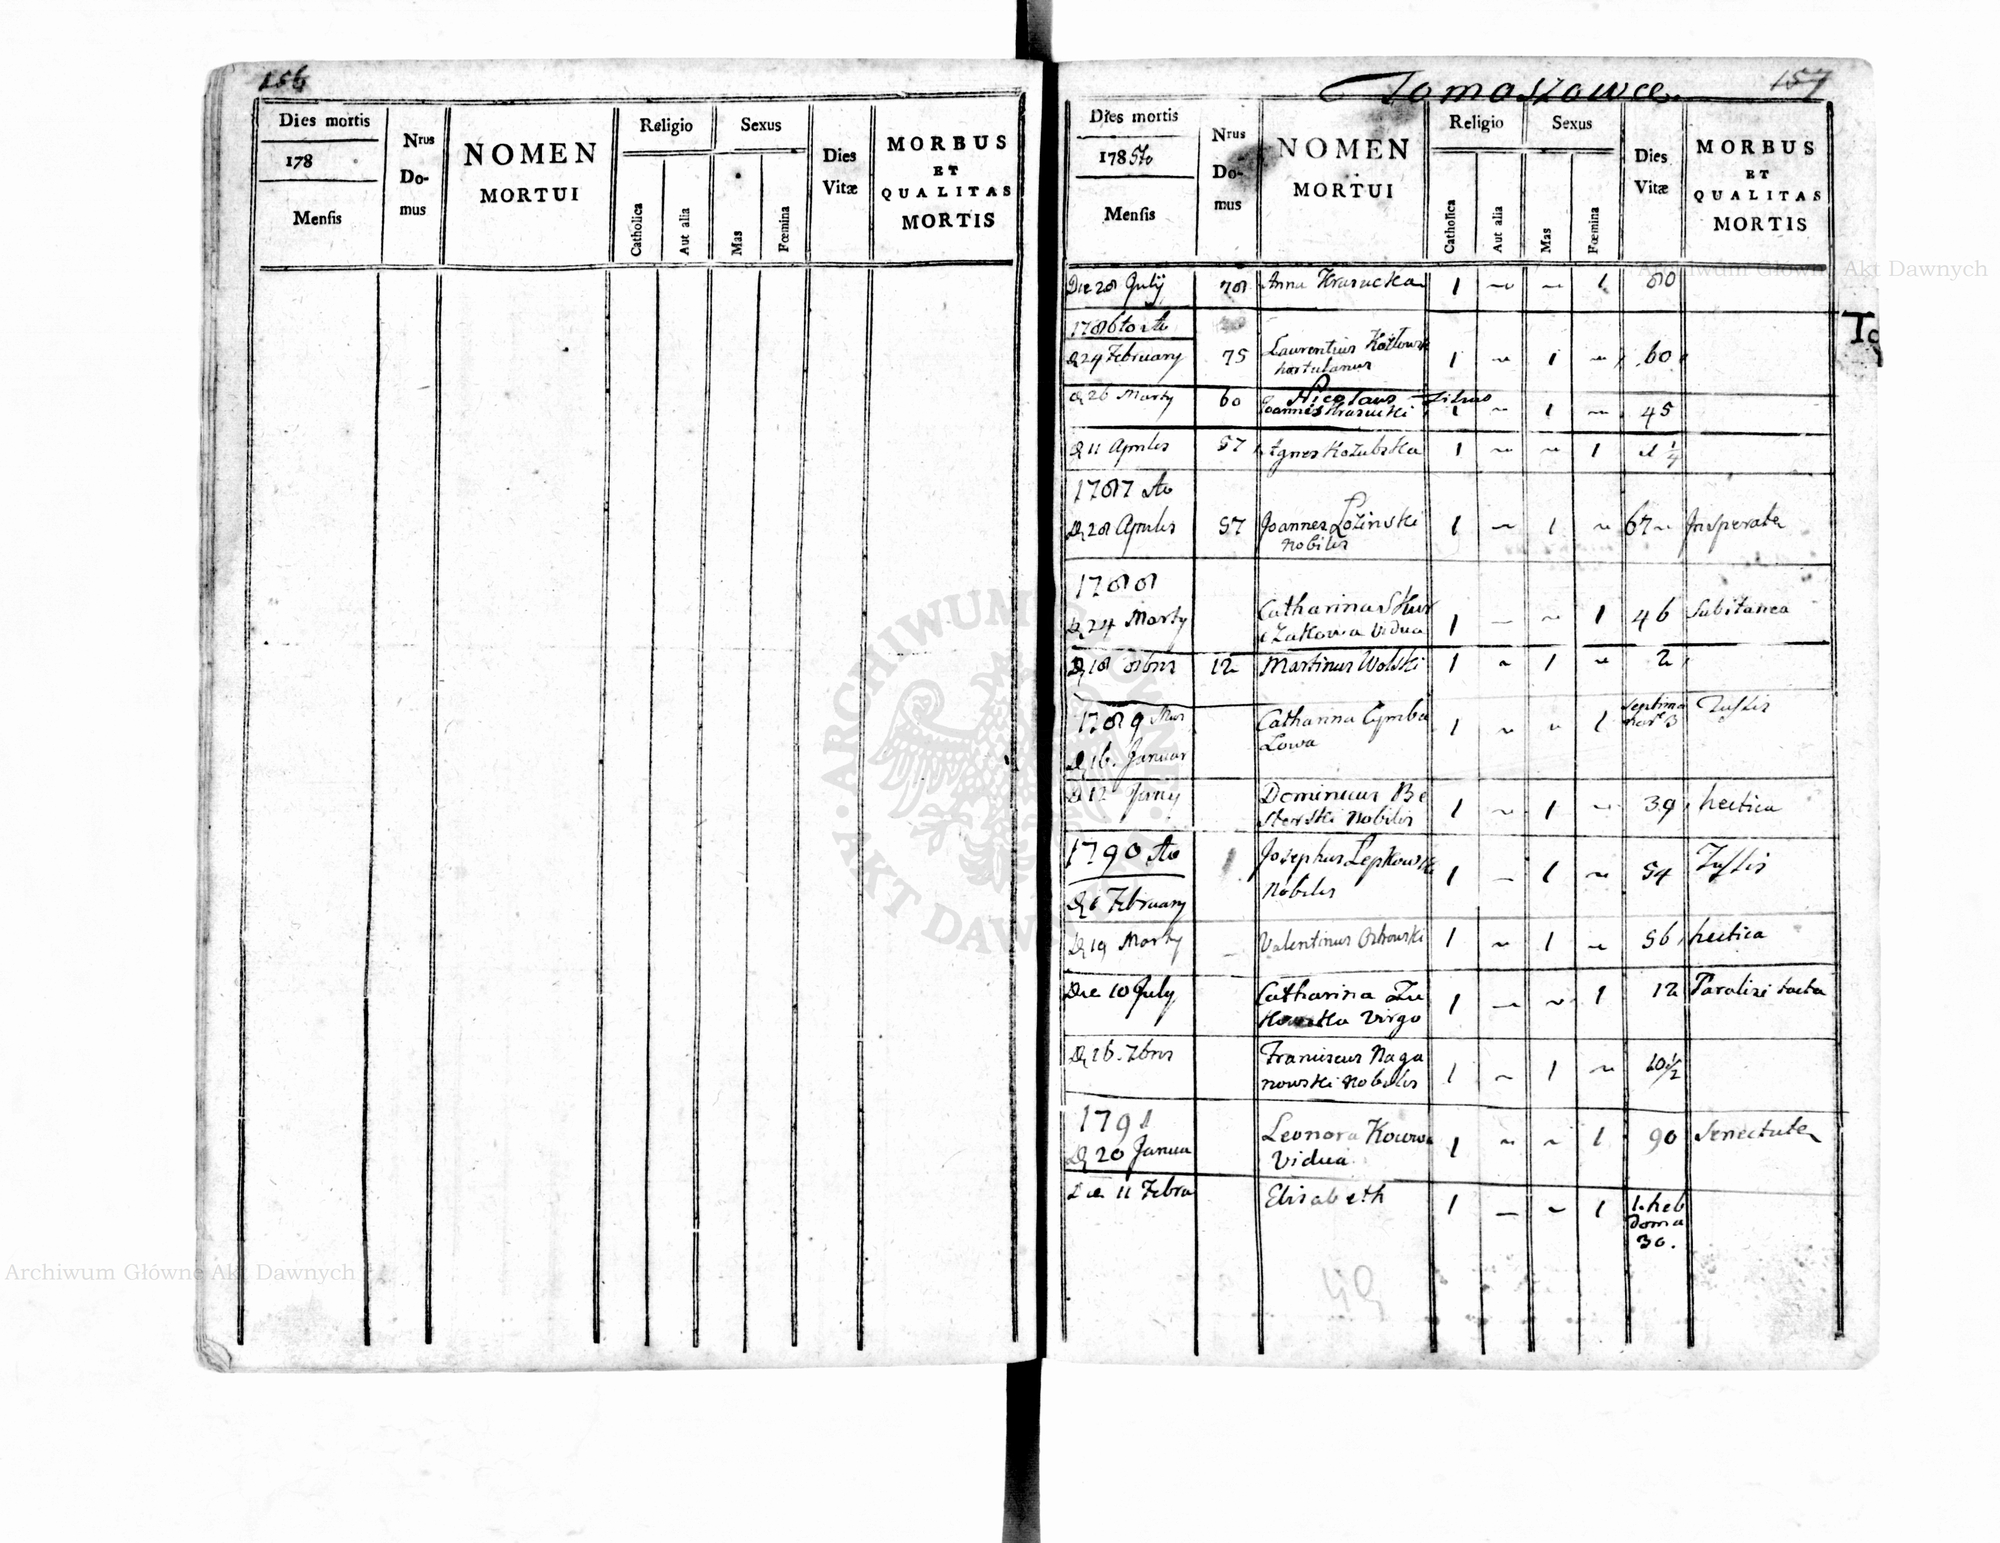 156
Dies mortis
178
Mensis
Nrus
Do-
mus
NOMEN
MORTUI
Religio
Catholica
Aut alia
Sexus
Mas
Fœmina
Dies
Vitæ
MORBUS
ET
QUALITAS
MORTIS
Tomaszowce
157
Dies mortis
1785to
Mensis
Nrus
Do-
mus
NOMEN
MORTUI
Religio
Catholica
Aut alia
Sexus
Mas
Fœmina
Dies
Vitæ
MORBUS
ET
QUALITAS
MORTIS
Die 28 July 78 Anna Krasucka 1 ~ ~ 1 80
1786to
24 February 75 Laurentius 1 ~ 1 ~ 60
hortulanus
Nicolaus filius
26 Marty 60 Joannes Krasucki 1 ~ 1 ~ 45
11 Aprilis 57 Agnes Kozubska 1 ~ ~ 1 1/4
1787
28 Aprilis 57 Joannes Lozinski 1 ~ 1 ~ 67 ~
nobilis
1788
24 Marty Catharina Skur 1 ~ ~ 1 46 Subitanea
czakowa vidua
18 8bris 12 Martinus Wolski 1 ~ 1 ~ 2
1789
16. Januar Catharina Cymba 1 ~ ~ 1 Septima Tussis
Lowa
12 Juny Dominicus Be 1 ~ 1 ~ 39 hectica
Nobilis
1790
6 February Josephus Lepkowski 1 ~ 1 ~ 54 Tussis
Nobilis
19 Marty Valentinus Ostrowski 1 ~ 1 ~ 56 hectica
Die 10 July Catharina Zu 1 ~ ~ 1 12 Paralizi tacta
kowska Virgo
16. 7bris Franciscus Naga 1 ~ 1 ~ 10 1/2
nowski Nobilis
1791
20 Janua Leonora 1 ~ ~ 1 90 Senectute
Vidua
Die 11 Febru Elisabeth 1 ~ ~ 1 1. heb
doma
30.
ARCHIWUM GŁÓWNE AKT DAWNYCH
Archiwum Główne Akt Dawnych
Archiwum Główne Akt Dawnych